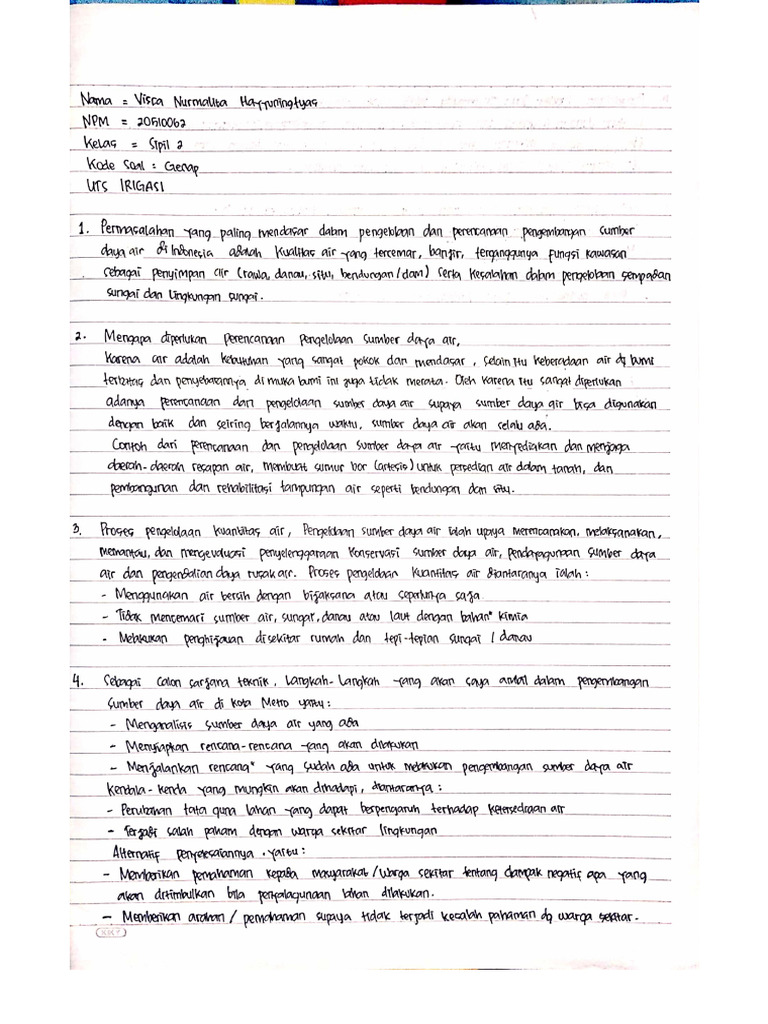 Nama = Visca Nurmalita Hayyuningtyas
NPM = 20510062
Kelas = Sipil 2
Kode Soal : Genap
UTS IRIGASI
1. Permasalahan yang paling mendasar dalam pengelolaan dan perencanaan pengembangan sumber
daya air di Indonesia adalah kualitas air yang tercemar, banjir, terganggunya fungsi kawasan
sebagai penyimpan air (rawa, danau, situ, bendungan/dam) serta kesalahan dalam pengelolaan sempadan
sungai dan lingkungan sungai.
2. Mengapa diperlukan perencanaan pengelolaan sumber daya air,
Karena air adalah kebutuhan yang sangat pokok dan mendasar, selain itu keberadaan air dg bumi
terbatas dan penyebarannya di muka bumi ini juga tidak merata. Oleh karena itu sangat diperlukan
adanya perencanaan dari pengelolaan sumber daya air supaya sumber daya air bisa digunakan
dengan baik dan seiring berjalannya waktu, sumber daya air akan selalu ada.
Contoh dari perencanaan dan pengelolaan sumber daya air yaitu menyediakan dan menjaga
daerah-daerah resapan air, membuat sumur bor (artesis) untuk persedian air dalam tanah, dan
pembangunan dan rehabilitasi tampungan air seperti bendungan dam situ.
3. Proses pengelolaan kuantitas air, Pengelolaan sumber daya air ialah upaya merencanakan, melaksanakan,
memantau, dan mengevaluasi penyelenggaraan konservasi sumber daya air, pendayagunaan sumber daya
air dan pengendalian daya rusak air. Proses pengelolaan kuantitas air diantaranya ialah :
- Menggunakan air bersih dengan bijaksana atau seperlunya saja
- Tidak mencemari sumber air, sungai, danau atau laut dengan bahan" kimia
- Melakukan penghijauan disekitar rumah dan tepi-tepian sungai / danau
4. Sebagai calon sarjana teknik, langkah-langkah yang akan saya ambil dalam pengembangan
sumber daya air di kota Metro yaitu :
- Menganalisis sumber daya air yang ada
- Menyiapkan rencana-rencana yang akan dilakukan
- Menjalankan rencana" yang sudah ada untuk melakukan pengembangan sumber daya air
Kendala-kenda yang mungkin akan dihadapi, diantaranya :
- Perubahan tata guna lahan yang dapat berpengaruh terhadap ketersediaan air
- Terjadi salah paham dengan warga sekitar lingkungan
Alternatif penyelesaiannya . yaitu :
- Memberikan pemahaman kepada masyarakat / warga sekitar tentang dampak negatif apa yang
akan ditimbulkan bila penyalagunaan lahan dilakukan.
- Memberikan arahan / pemahaman supaya tidak terjadi kesalah pahaman dg warga sekitar.